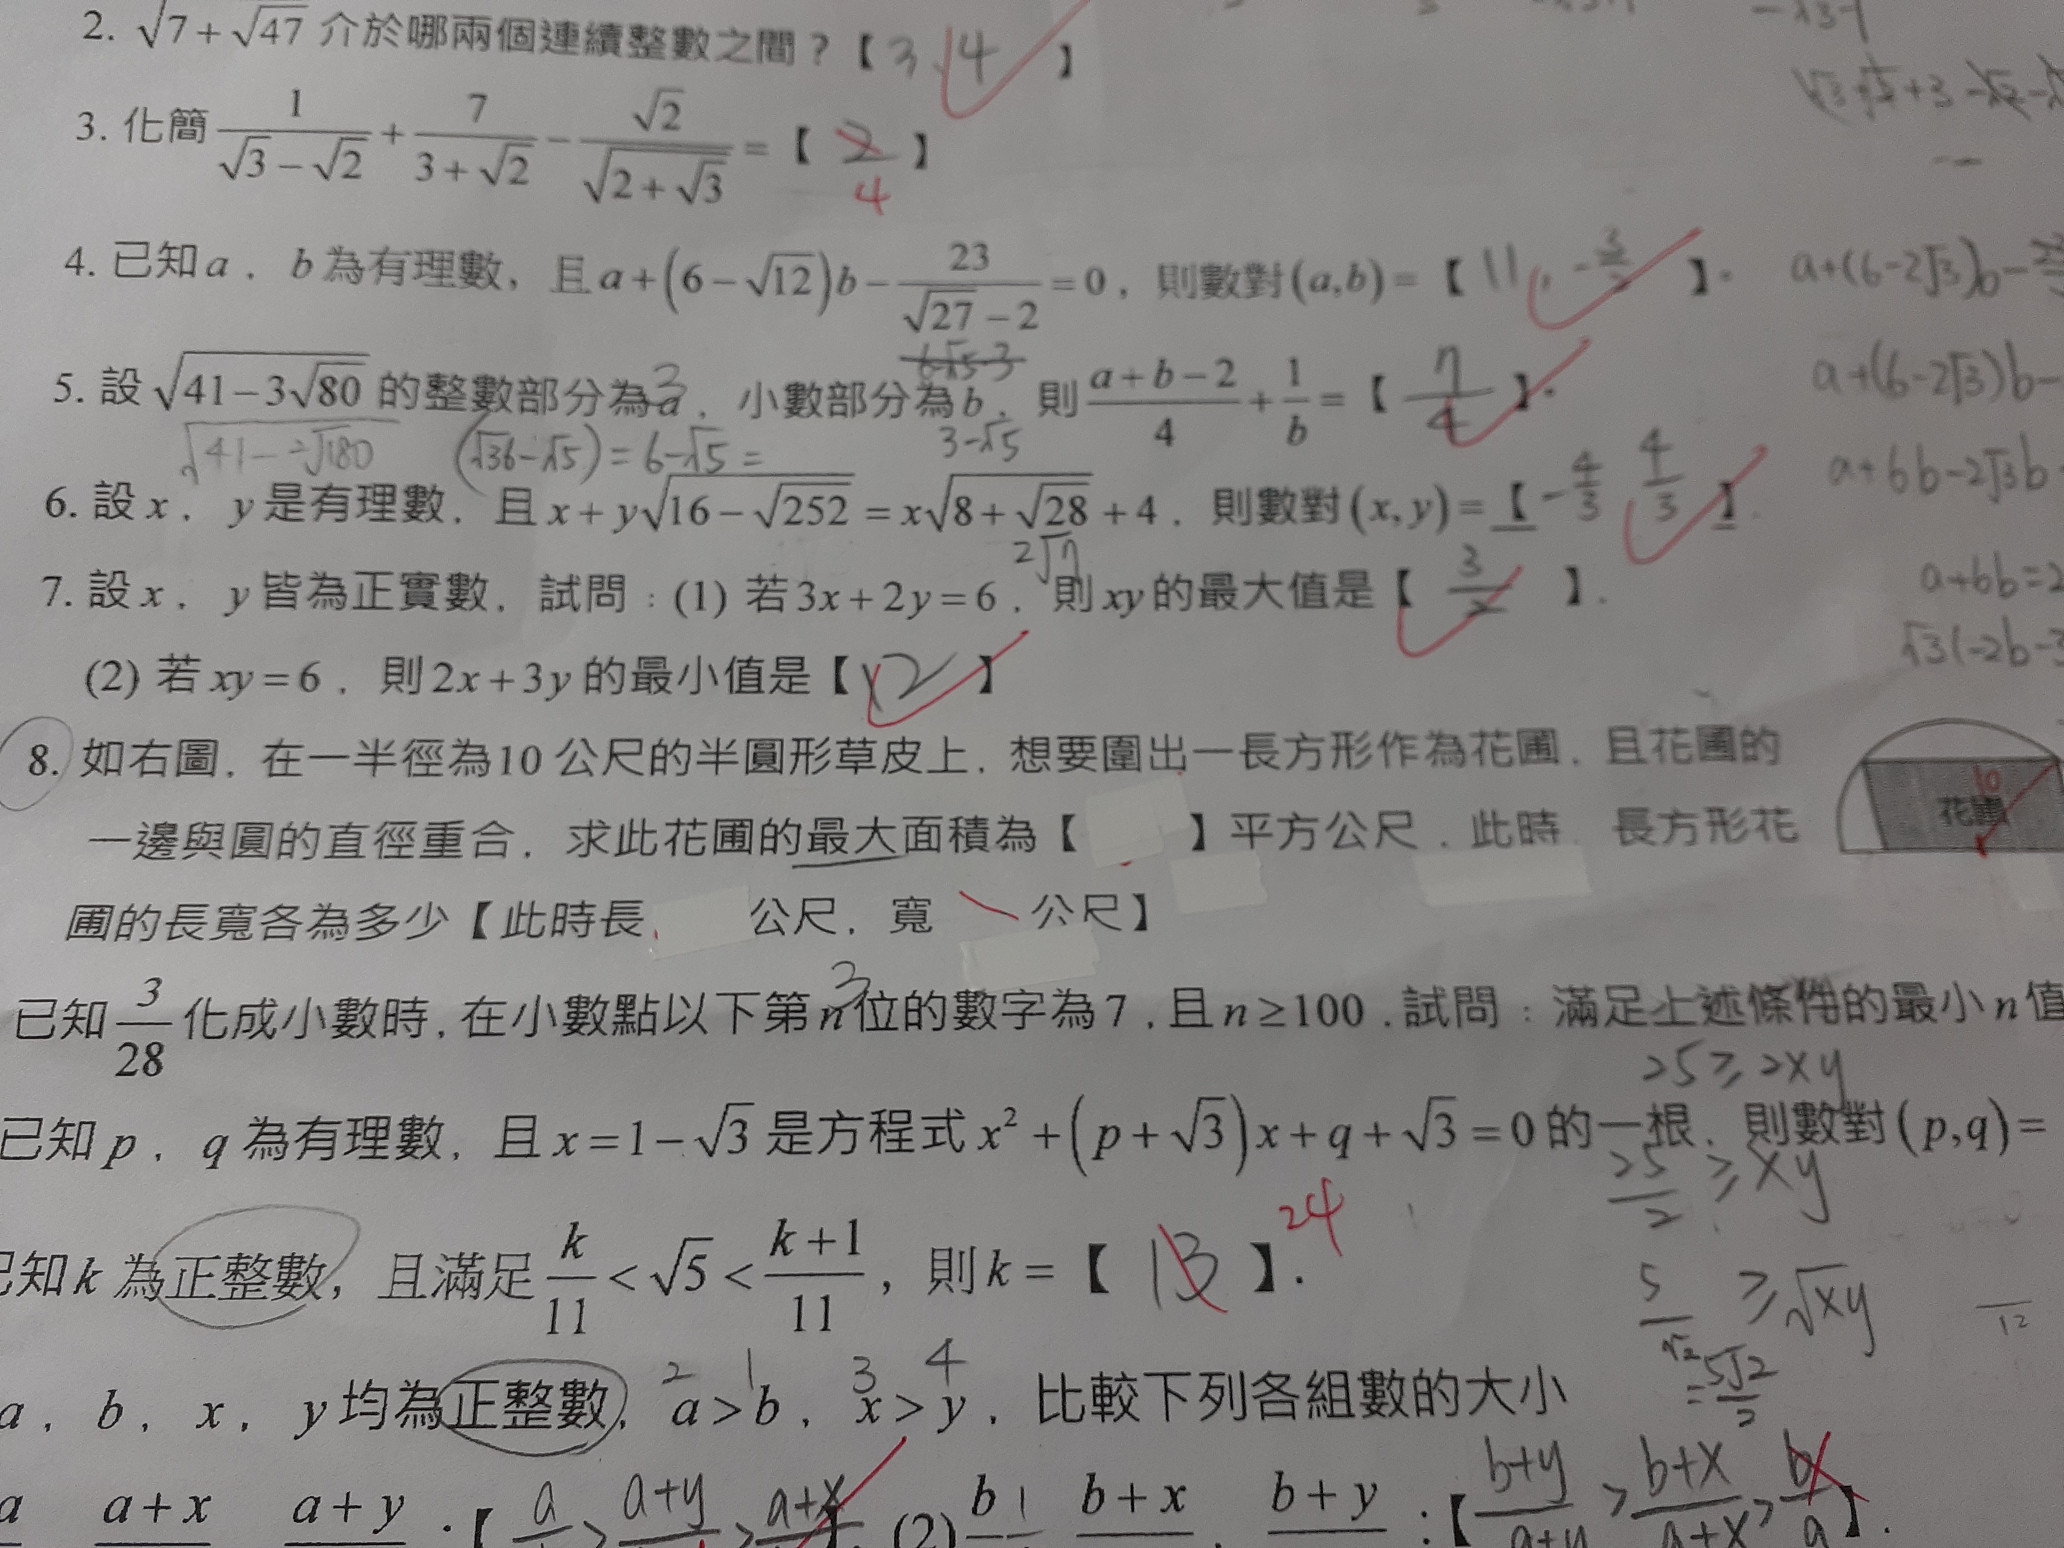 2. √(7+√47) 介於哪兩個連續整數之間？【3,4】
3. 化簡 1/(√3−√2) + 7/(3+√2) − √2/√(2+√3) = 【2】
4
4. 已知a，b為有理數，且a+(6−√12)b−23/(√27−2)=0，則數對(a,b)=【11, -3/2】。
5. 設√(41−3√80)的整數部分為a，小數部分為b，則(a+b−2)/4+1/b=【7/4】。
3
√(41-2√180) (√36-√5)=6-√5= 3-√5
6. 設x，y是有理數，且x+y√(16−√252)=x√(8+√28)+4，則數對(x,y)=【-4/3 4/3】.
2√7
7. 設x，y皆為正實數，試問：(1) 若3x+2y=6，則xy的最大值是【3/2】.
(2) 若xy=6，則2x+3y的最小值是【12】
8. 如右圖，在一半徑為10公尺的半圓形草皮上，想要圍出一長方形作為花圃，且花圃的
一邊與圓的直徑重合，求此花圃的最大面積為【 】平方公尺．此時，長方形花
圃的長寬各為多少【此時長 公尺，寬 公尺】
花圃
10
已知3/28化成小數時，在小數點以下第n位的數字為7，且n≥100．試問：滿足上述條件的最小n值
3
已知p，q為有理數，且x=1−√3是方程式x²+(p+√3)x+q+√3=0的一根，則數對(p,q)=
已知k為正整數，且滿足k/11<√5<(k+1)/11，則k=【13】.
24
a，b，x，y均為正整數，a>b，x>y，比較下列各組數的大小
2 1 3 4
a a+x a+y：【a > a+y > a+x】. (2) b b+x b+y：【(b+y)/(a+y) > (b+x)/(a+x) > b/a】.
a+(6-2√3)b-
a+(6-2√3)b-
a+6b-2√3b
a+6b=2
√3(-2b-3
25≥2xy
25/2≥xy
5/√2≥√xy
=5√2/2
12